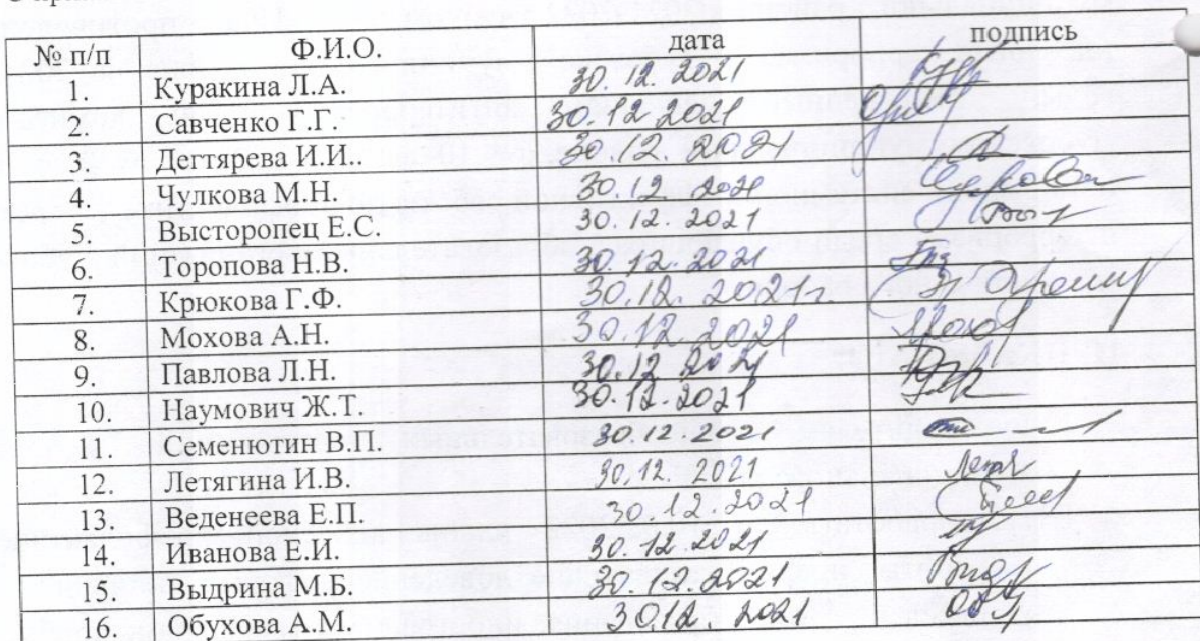 № п/п Ф.И.О. дата подпись
1. Куракина Л.А. 30.12.2021
2. Савченко Г.Г. 30.12 2021
3. Дегтярева И.И.. 30.12.2021
4. Чулкова М.Н. 30.12.2021
5. Высторопец Е.С. 30.12.2021
6. Торопова Н.В. 30.12.2021
7. Крюкова Г.Ф. 30.12.2021г.
8. Мохова А.Н. 30.12.2021
9. Павлова Л.Н. 30.12 2021
10. Наумович Ж.Т. 30.12.2021
11. Семенютин В.П. 30.12.2021
12. Летягина И.В. 30.12.2021
13. Веденеева Е.П. 30.12.2021
14. Иванова Е.И. 30.12.2021
15. Выдрина М.Б. 30.12.2021
16. Обухова А.М. 30.12.2021